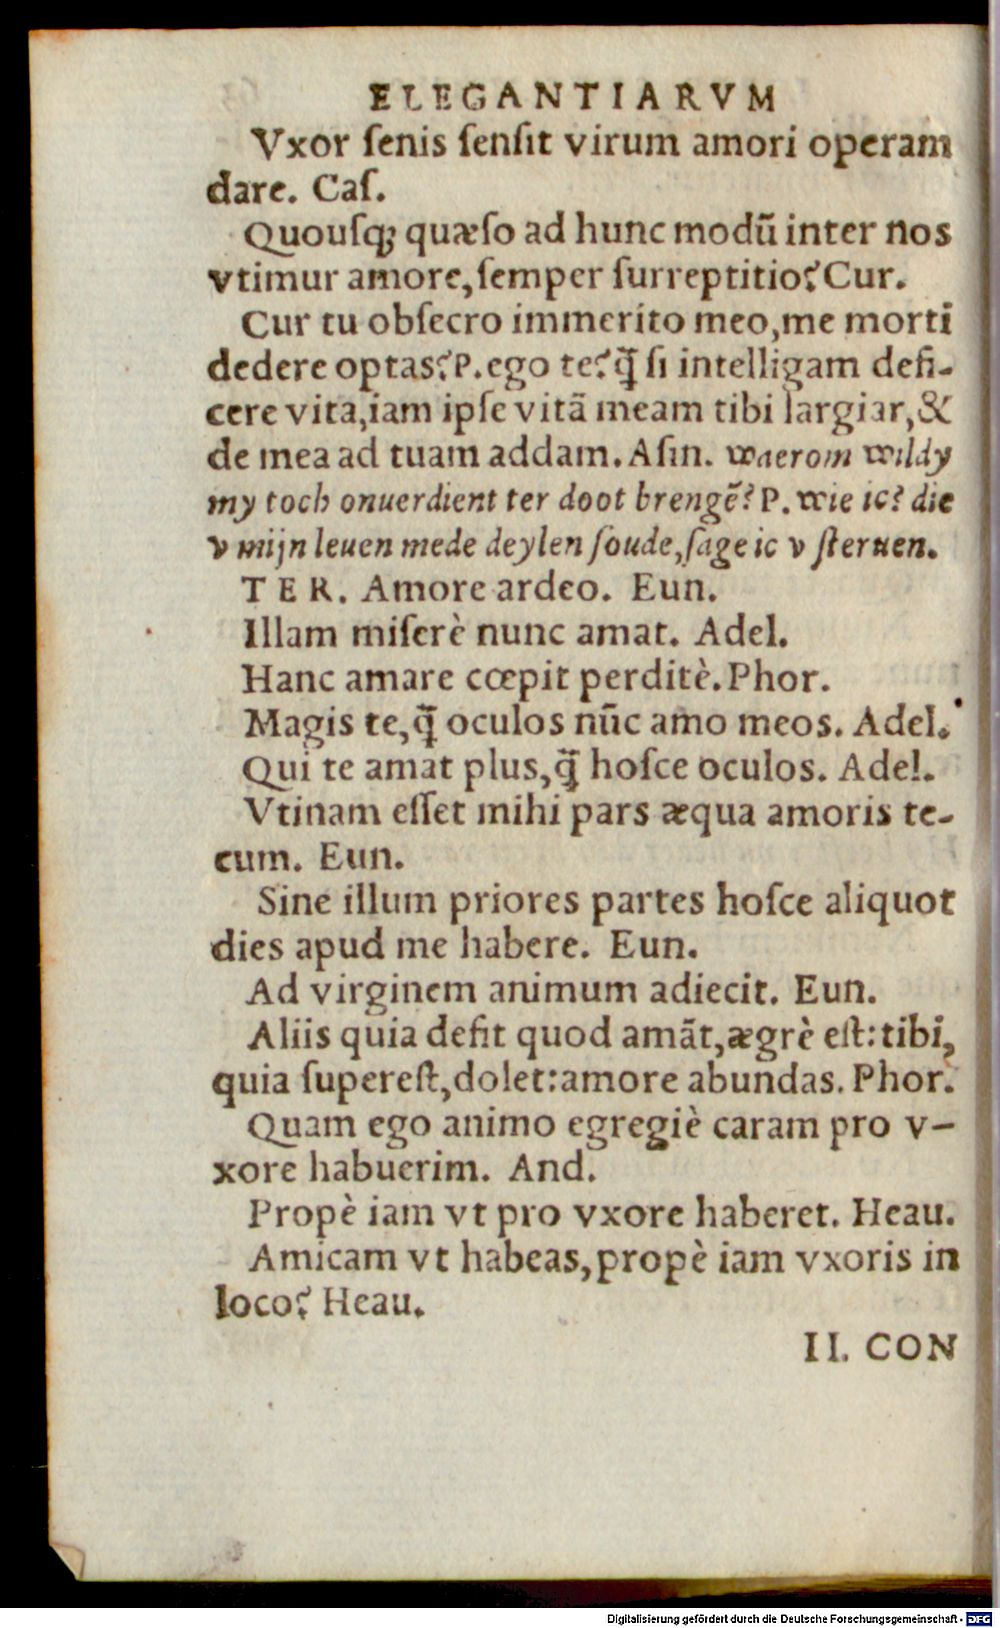 ELEGANTIARVM
Vxor ſenis ſenſit virum amori operam
dare. Caſ.
Quouſq; quæſo ad hunc modũ inter nos
vtimur amore,ſemper ſurreptitio? Cur.
Cur tu obſecro immerito meo,me morti
dedere optas? P. ego te? q̃ ſi intelligam defi-
cere vita,iam ipſe vitã meam tibi largiar,&
de mea ad tuam addam. Aſin. waerom wildy
my toch onuerdient ter doot brengẽ? P. wie ic? die
v mijn leuen mede deylen ſoude,ſage ic v ſteruen.
TER. Amore ardeo. Eun.
Illam miſerè nunc amat. Adel.
Hanc amare cœpit perditè. Phor.
Magis te,q̃ oculos nũc amo meos. Adel.
Qui te amat plus,q̃ hoſce oculos. Adel.
Vtinam eſſet mihi pars æqua amoris te-
cum. Eun.
Sine illum priores partes hoſce aliquot
dies apud me habere. Eun.
Ad virginem animum adiecit. Eun.
Aliis quia defit quod amãt,ægrè eſt: tibi,
quia ſupereſt,dolet: amore abundas. Phor.
Quam ego animo egregiè caram pro v-
xore habuerim. And.
Propè iam vt pro vxore haberet. Heau.
Amicam vt habeas,propè iam vxoris in
loco? Heau.
II. CON
Digitalisierung gefördert durch die Deutsche Forschungsgemeinschaft - DFG